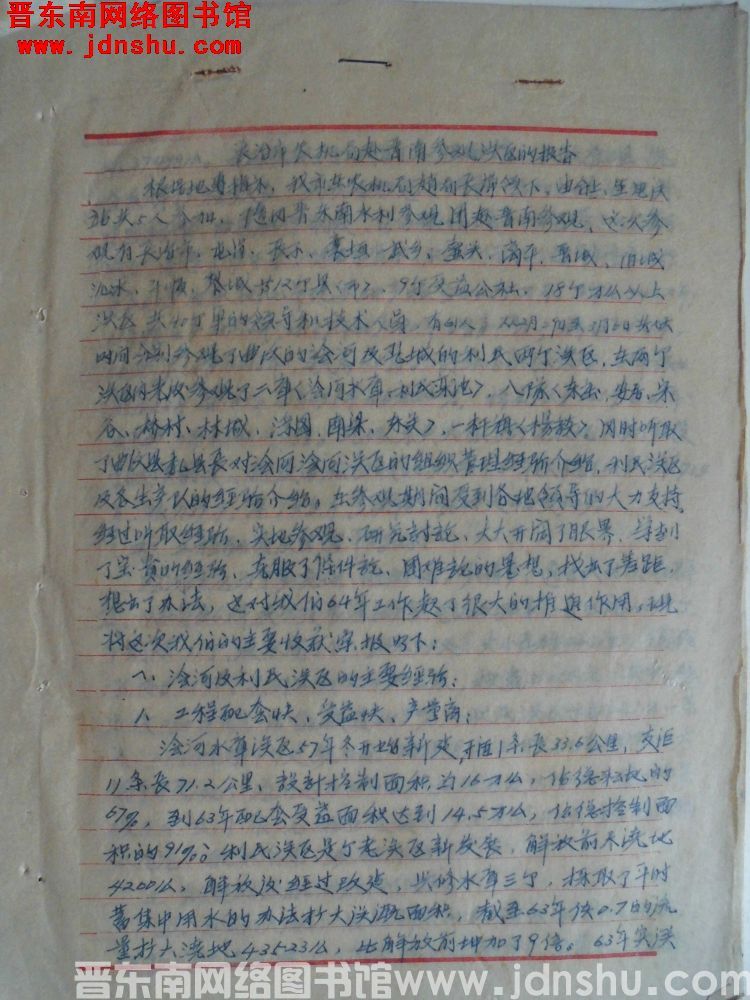 晋东南网络图书馆
www.jdnshu.com
长治市农机局赴晋南参观渼区的报告
根据地委指示，我市在农机局赵局长带领下，由
站共5人参加，随同晋东南水利参观团赴晋南参观，这次参
观有长治市、屯留、长子、襄垣、武乡、壶关、高平、晋城、阳城
沁水、平顺、黎城共12个县（市）、9个受益公社、18个万亩以上
渼区共40个单位的领导和技术人员，有 人
时间分别参观了曲沃的浍河及翼城的利民两个渼区，在两个
渼区内先后参观了二库（浍河水库、利民 池），八队（东 、安居、宋
谷、桥村、林城、深图、南梁、 ），一杆旗（杨 ）。同时听取
了曲沃县 县长对浍河渼区的组织管理经验介绍，利民渼区
及各生产队的经验介绍。在参观期间受到各地领导的大力支持，
经过听取经验、实地参观、研究讨论，大大开阔了眼界，学到
了宝贵的经验，克服了条件论、困难论的思想，找出了差距，
想出了办法，这对我们64年工作起了很大的推进作用，现
将这次我们的主要收获汇报如下：
一、浍河及利民渼区的主要经验：
1、工程配套快、受益快、产量高：
浍河水库渼区57年冬开始新建，干渠1条长33.6公里，支渠
11条长71.2公里，设计控制面积为16万亩，占总 的
67%，到63年配套受益面积达到14.5万亩，占总控制面
积的91%；利民渼区是个老渼区新发展，解放前只浇地
4200亩，解放后经过改建，兴修水库三个，采取了平时
蓄集中用水的办法扩大渼溉面积，截至63年供0.7的流
量扩大浇地43523亩，比解放前增加了9倍。63年实渼
晋东南网络图书馆 www.jdnshu.com